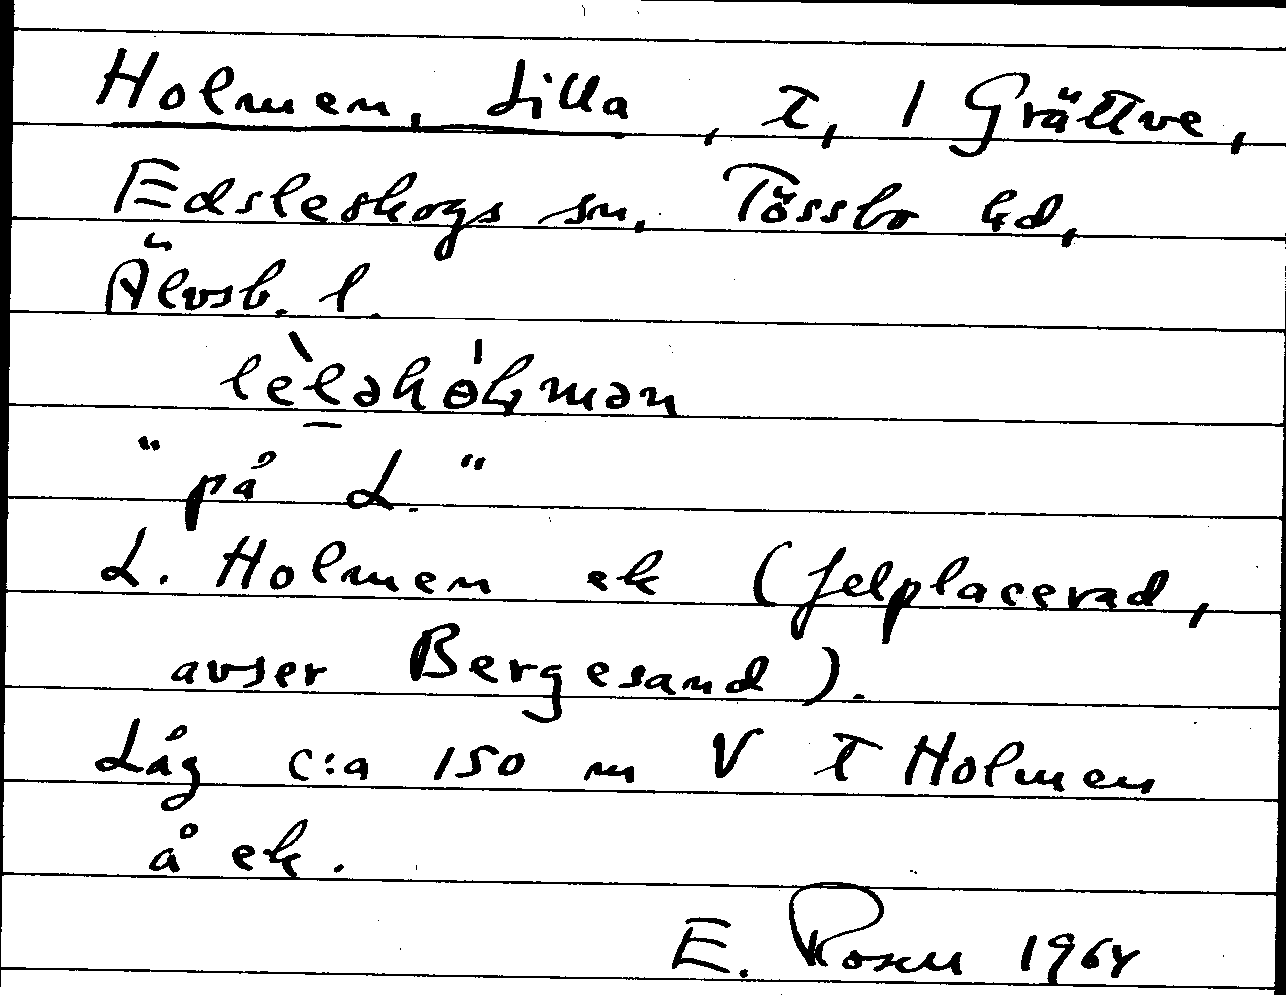 Holmen, Lilla, t, 1 Grättve,
Edsleskogs sn. Tössbo hd,
Älvsb. l.
"på L."
L. Holmen ek (felplacerad,
avser Bergesand).
Låg c:a 150 m V t Holmen
å ek.
E. Rosen 1964